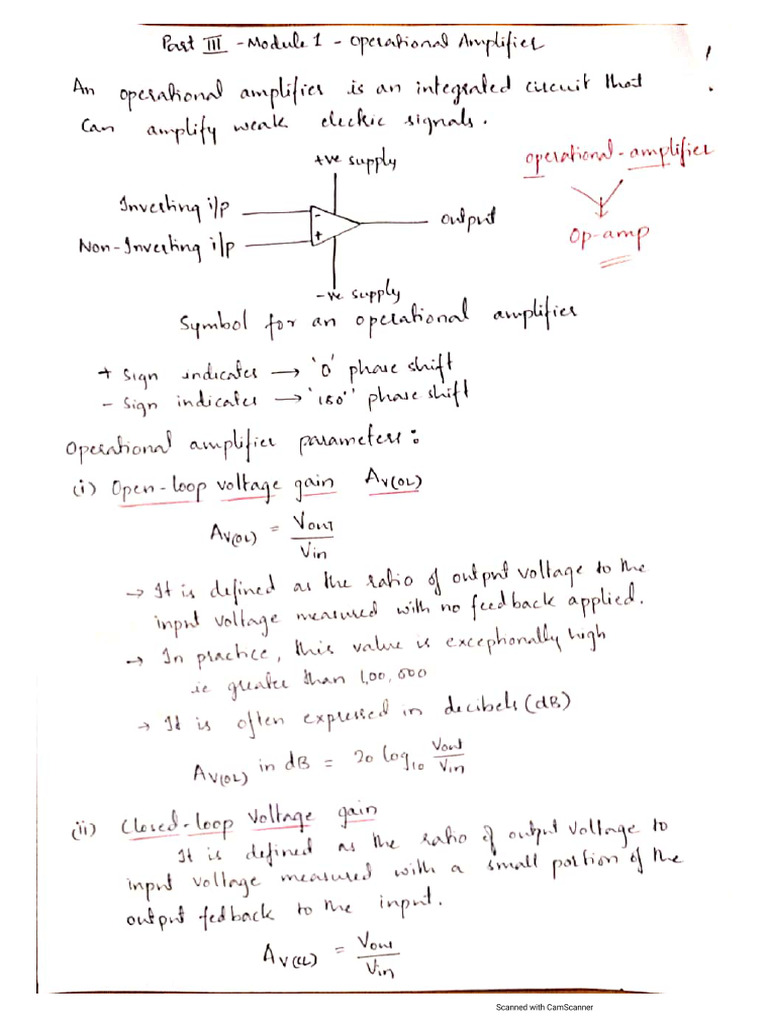 Part III - Module 1 - Operational Amplifier
An operational amplifier is an integrated circuit that
can amplify weak electric signals.
+ve supply
operational-amplifier
Inverting i/p
output
Op-amp
Non-Inverting i/p
-
+
-ve supply
Symbol for an operational amplifier
+ sign indicates → '0' phase shift
- sign indicates → '180°' phase shift
Operational amplifier parameters:
(i) Open-loop voltage gain Av(OL)
Av(OL) = Vout/Vin
→ It is defined as the ratio of output voltage to the
input voltage measured with no feedback applied.
→ In practice, this value is exceptionally high
ie greater than 1,00,000
→ It is often expressed in decibels (dB)
Av(OL) in dB = 20 log10 Vout/Vin
(ii) Closed-loop voltage gain
It is defined as the ratio of output voltage to
input voltage measured with a small portion of the
output fedback to the input.
Av(CL) = Vout/Vin
Scanned with CamScanner